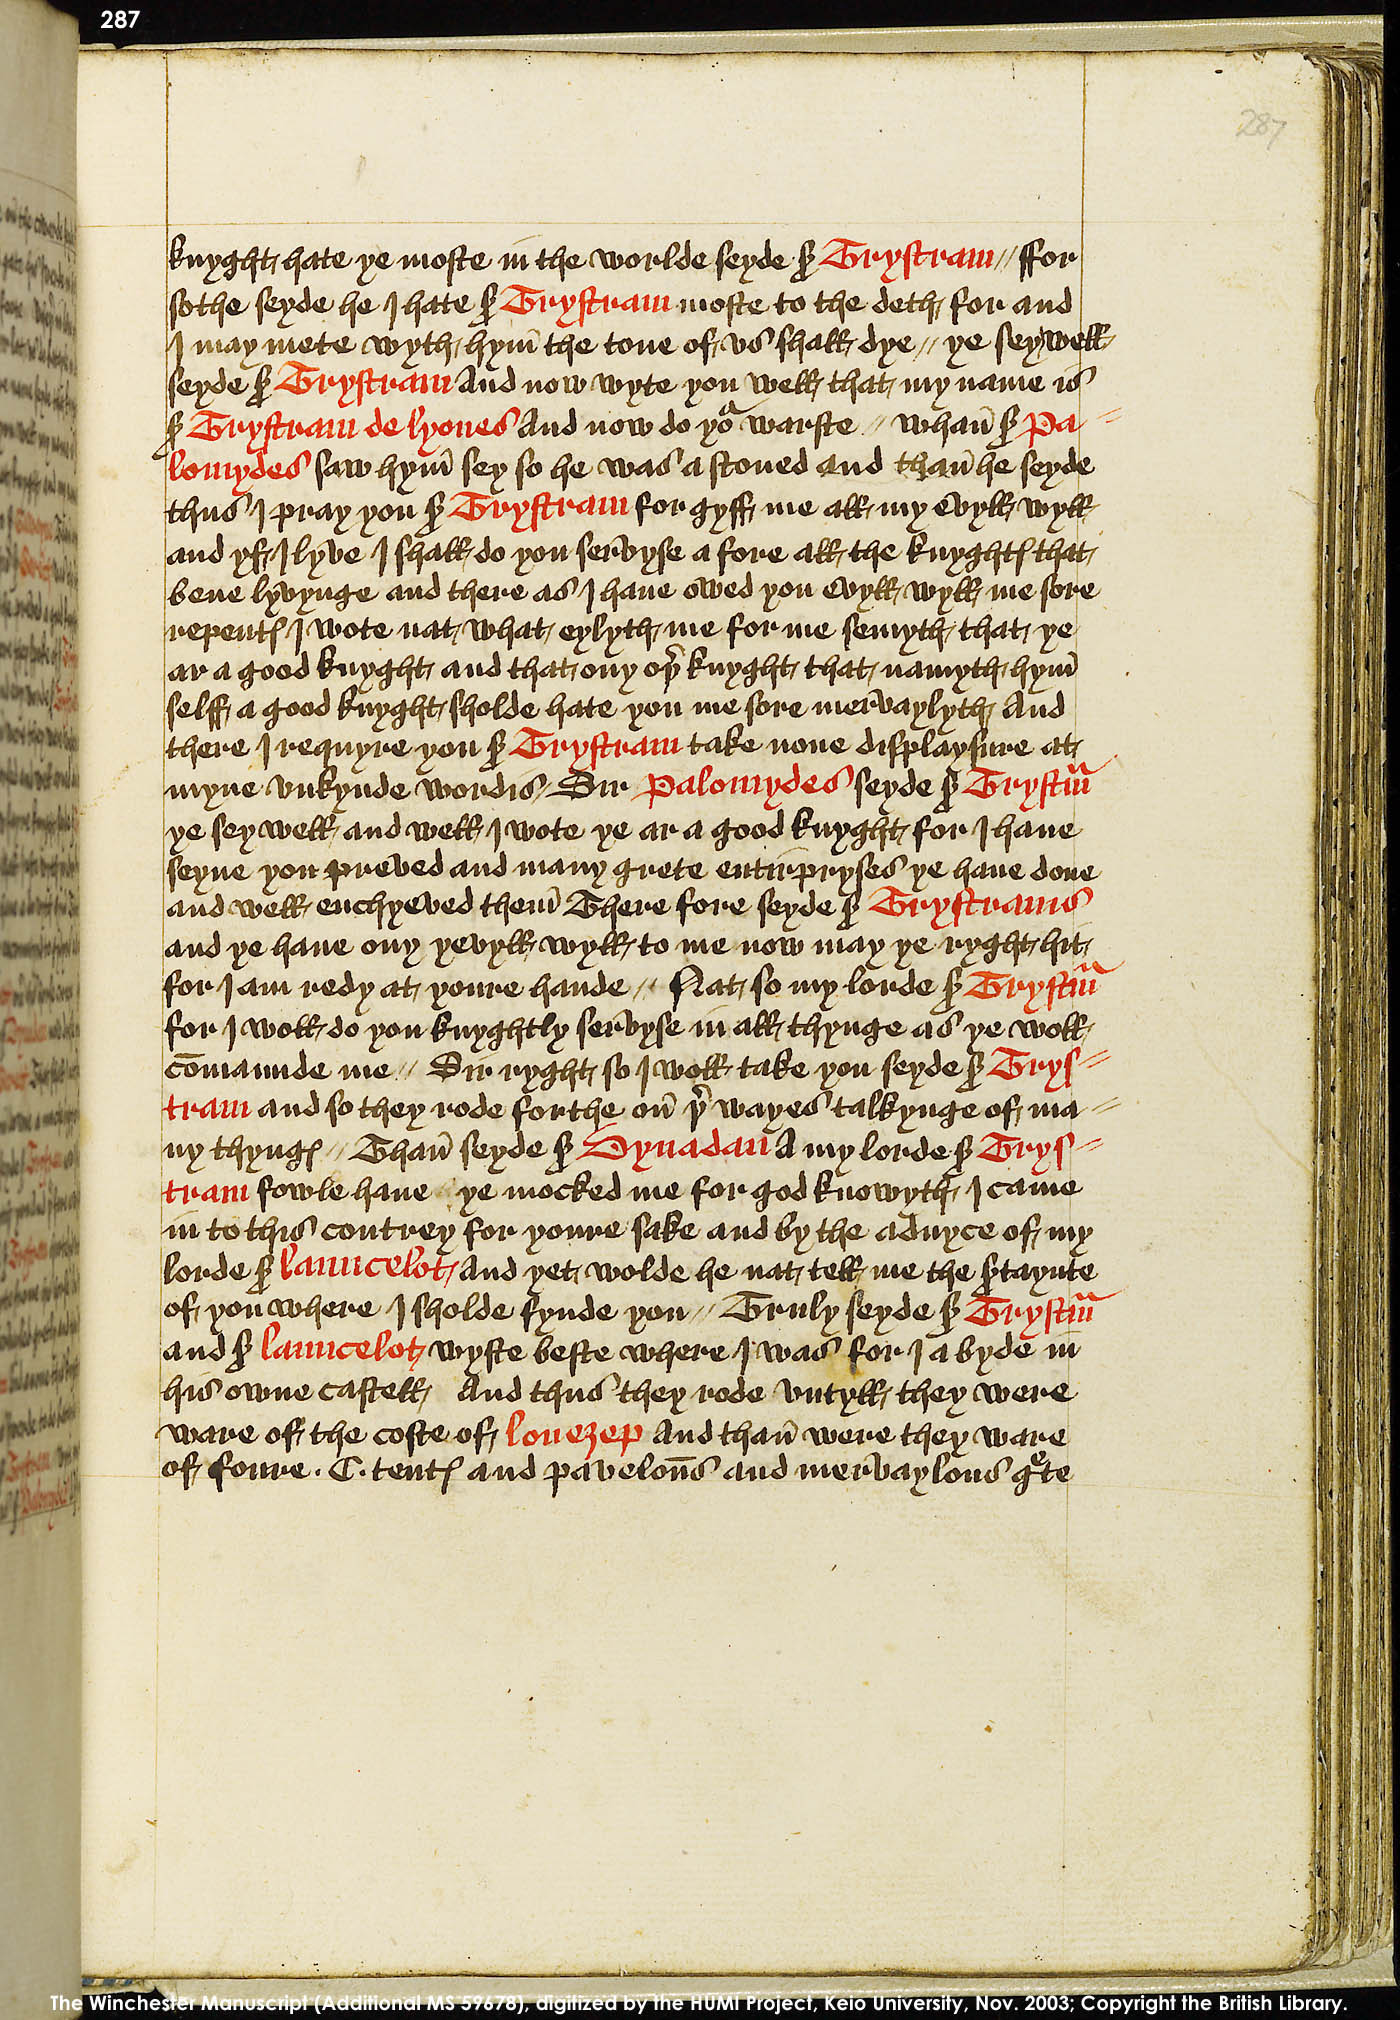 287
287
knyght hate ye moste in the worlde seyde sr Trystram // ffor
sothe seyde he I hate sr Trystram moste to the deth for and
I may mete wyth hym̄ the tone of vs shall dye // ye sey well
seyde sr Trystram And now wyte you well that my name is
sr Trystram de lyones And now do yor warste // whan̄ sr Pa=
lomydes saw hym̄ sey so he was a stoned and than̄ he seyde
thus I pray you sr Trystram for gyff me all my evyll wyll
and yf I lyve I shall do you servyse a fore all the knyghtꝭ that
bene lyvynge and there as I haue owed you evyll wyll me sore
repentꝭ I wote nat what eylyth me for me semyth that ye
ar a good knyght and that ony opr knyght that namyth hym̄
selff a good knyght sholde hate you me sore mervaylyth And
there I requyre you sr Trystram take none displaysure at
myne vnkynde wordis / Sir Palomydes seyde sr Trystm̄
ye sey well and well I wote ye ar a good knyght for I haue
seyne you preved and many grete entirpryses ye haue done
and well enchyeved them̄ There fore seyde sr Trystrams
and ye haue ony yevyll wyll to me now may ye ryght hit
for I am redy at youre hande // Nat so my lorde sr Trystm̄
for I woll do you knyghtly servyse in all thynge as ye woll
cōmaunde me // Sir ryght so I woll take you seyde sr Trys=
tram and so they rode forthe on̄ pr wayes talkynge of ma=
ny thyngꝭ // Than̄ seyde sr Dynadan̄ A my lorde sr Trys=
tram fowle haue ye mocked me for god knowyth I came
in to this contrey for youre sake and by the advyce of my
lorde sr launcelot And yet wolde he nat tell me the srtaynte
of you where I sholde fynde you // Truly seyde sr Trystm̄
and sr launcelot wyste beste where I was for I abyde in̄
his owne castell And thus they rode vntyll they were
ware of the coste of louezep And than̄ were they ware
of foure . C . tentꝭ and pavelon̄s and mervaylous grete
The Winchester Manuscript (Additional MS 59678), digitized by the HUMI Project, Keio University, Nov. 2003; Copyright the British Library.